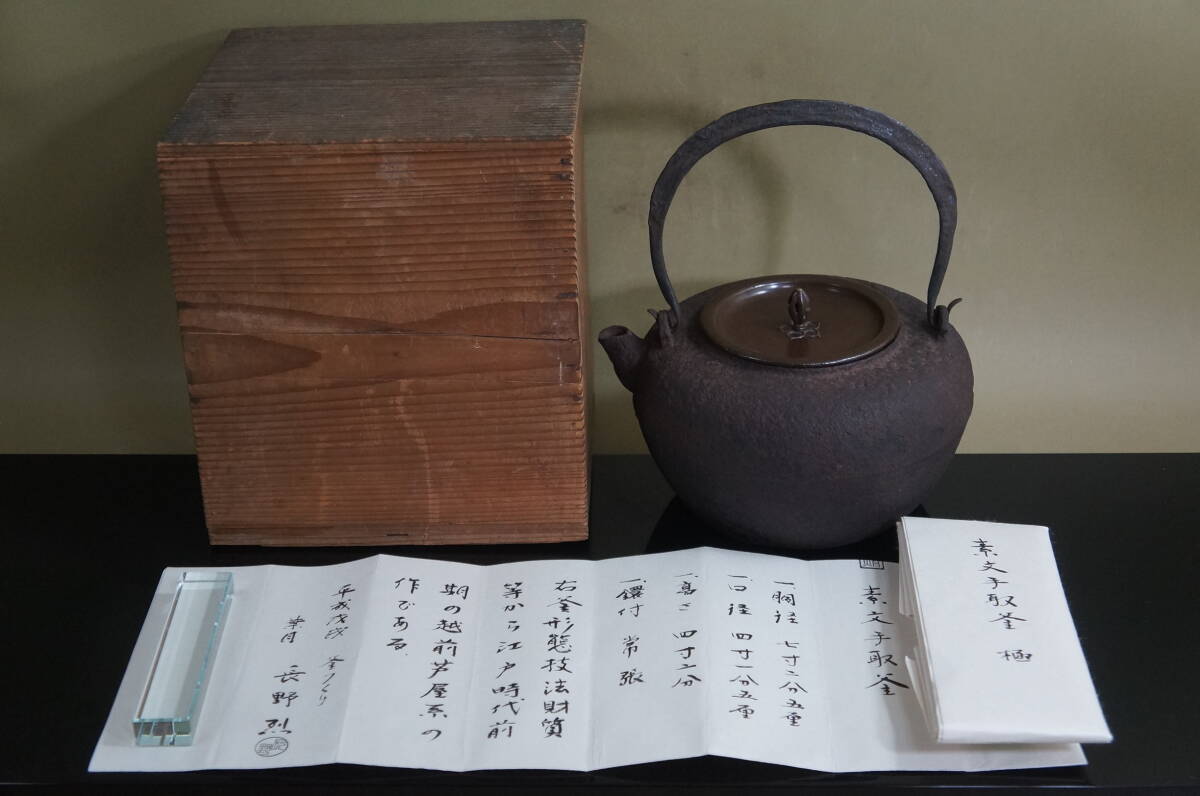 素文手取釜 極
素文手取釜
一、胴径 七寸二分五厘
一、口径 四寸一分五厘
一、高さ 四寸二分
一、鐶付 常張
右釜形態技法財質
等から江戸時代前
期の越前芦屋系の
作である
平成戊戌 釜つくり
葉月 長野 烈